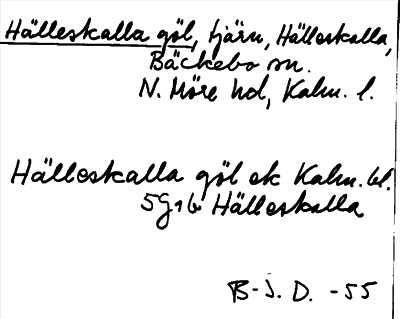 Hälleskalla göl, tjärn, Hälleskalla,
Bäckebo sn.
N. Möre hd, Kalm. l.
Hälleskalla göl ek Kalm. bl.
5G1b Hälleskalla
B-J. D. -55